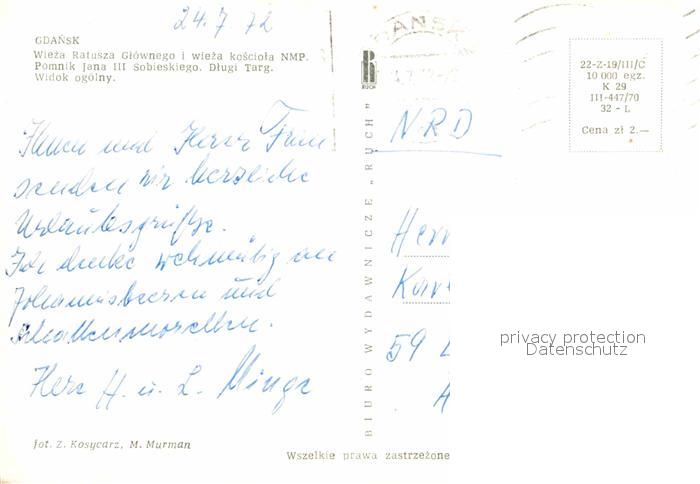 24.7.72
GDAŃSK
Wieża Ratusza Głównego i wieża kościoła NMP.
Pomnik Jana III Sobieskiego. Długi Targ.
Widok ogólny.
Ihnen und Ihrer Frau
senden wir herzliche
Urlaubsgrüße.
Ich denke wehmütig an
Johannisbeeren und
Schattenmorellen.
H. u. L.
fot. Z. Kosycarz, M. Murman
RUCH
BIURO WYDAWNICZE „RUCH”
GDAŃSK
22-Z-19/III/C
10 000 egz.
K 29
III-447/70
32 - L
Cena zł 2.—
NRD
Herr
59
privacy protection
Datenschutz
Wszelkie prawa zastrzeżone